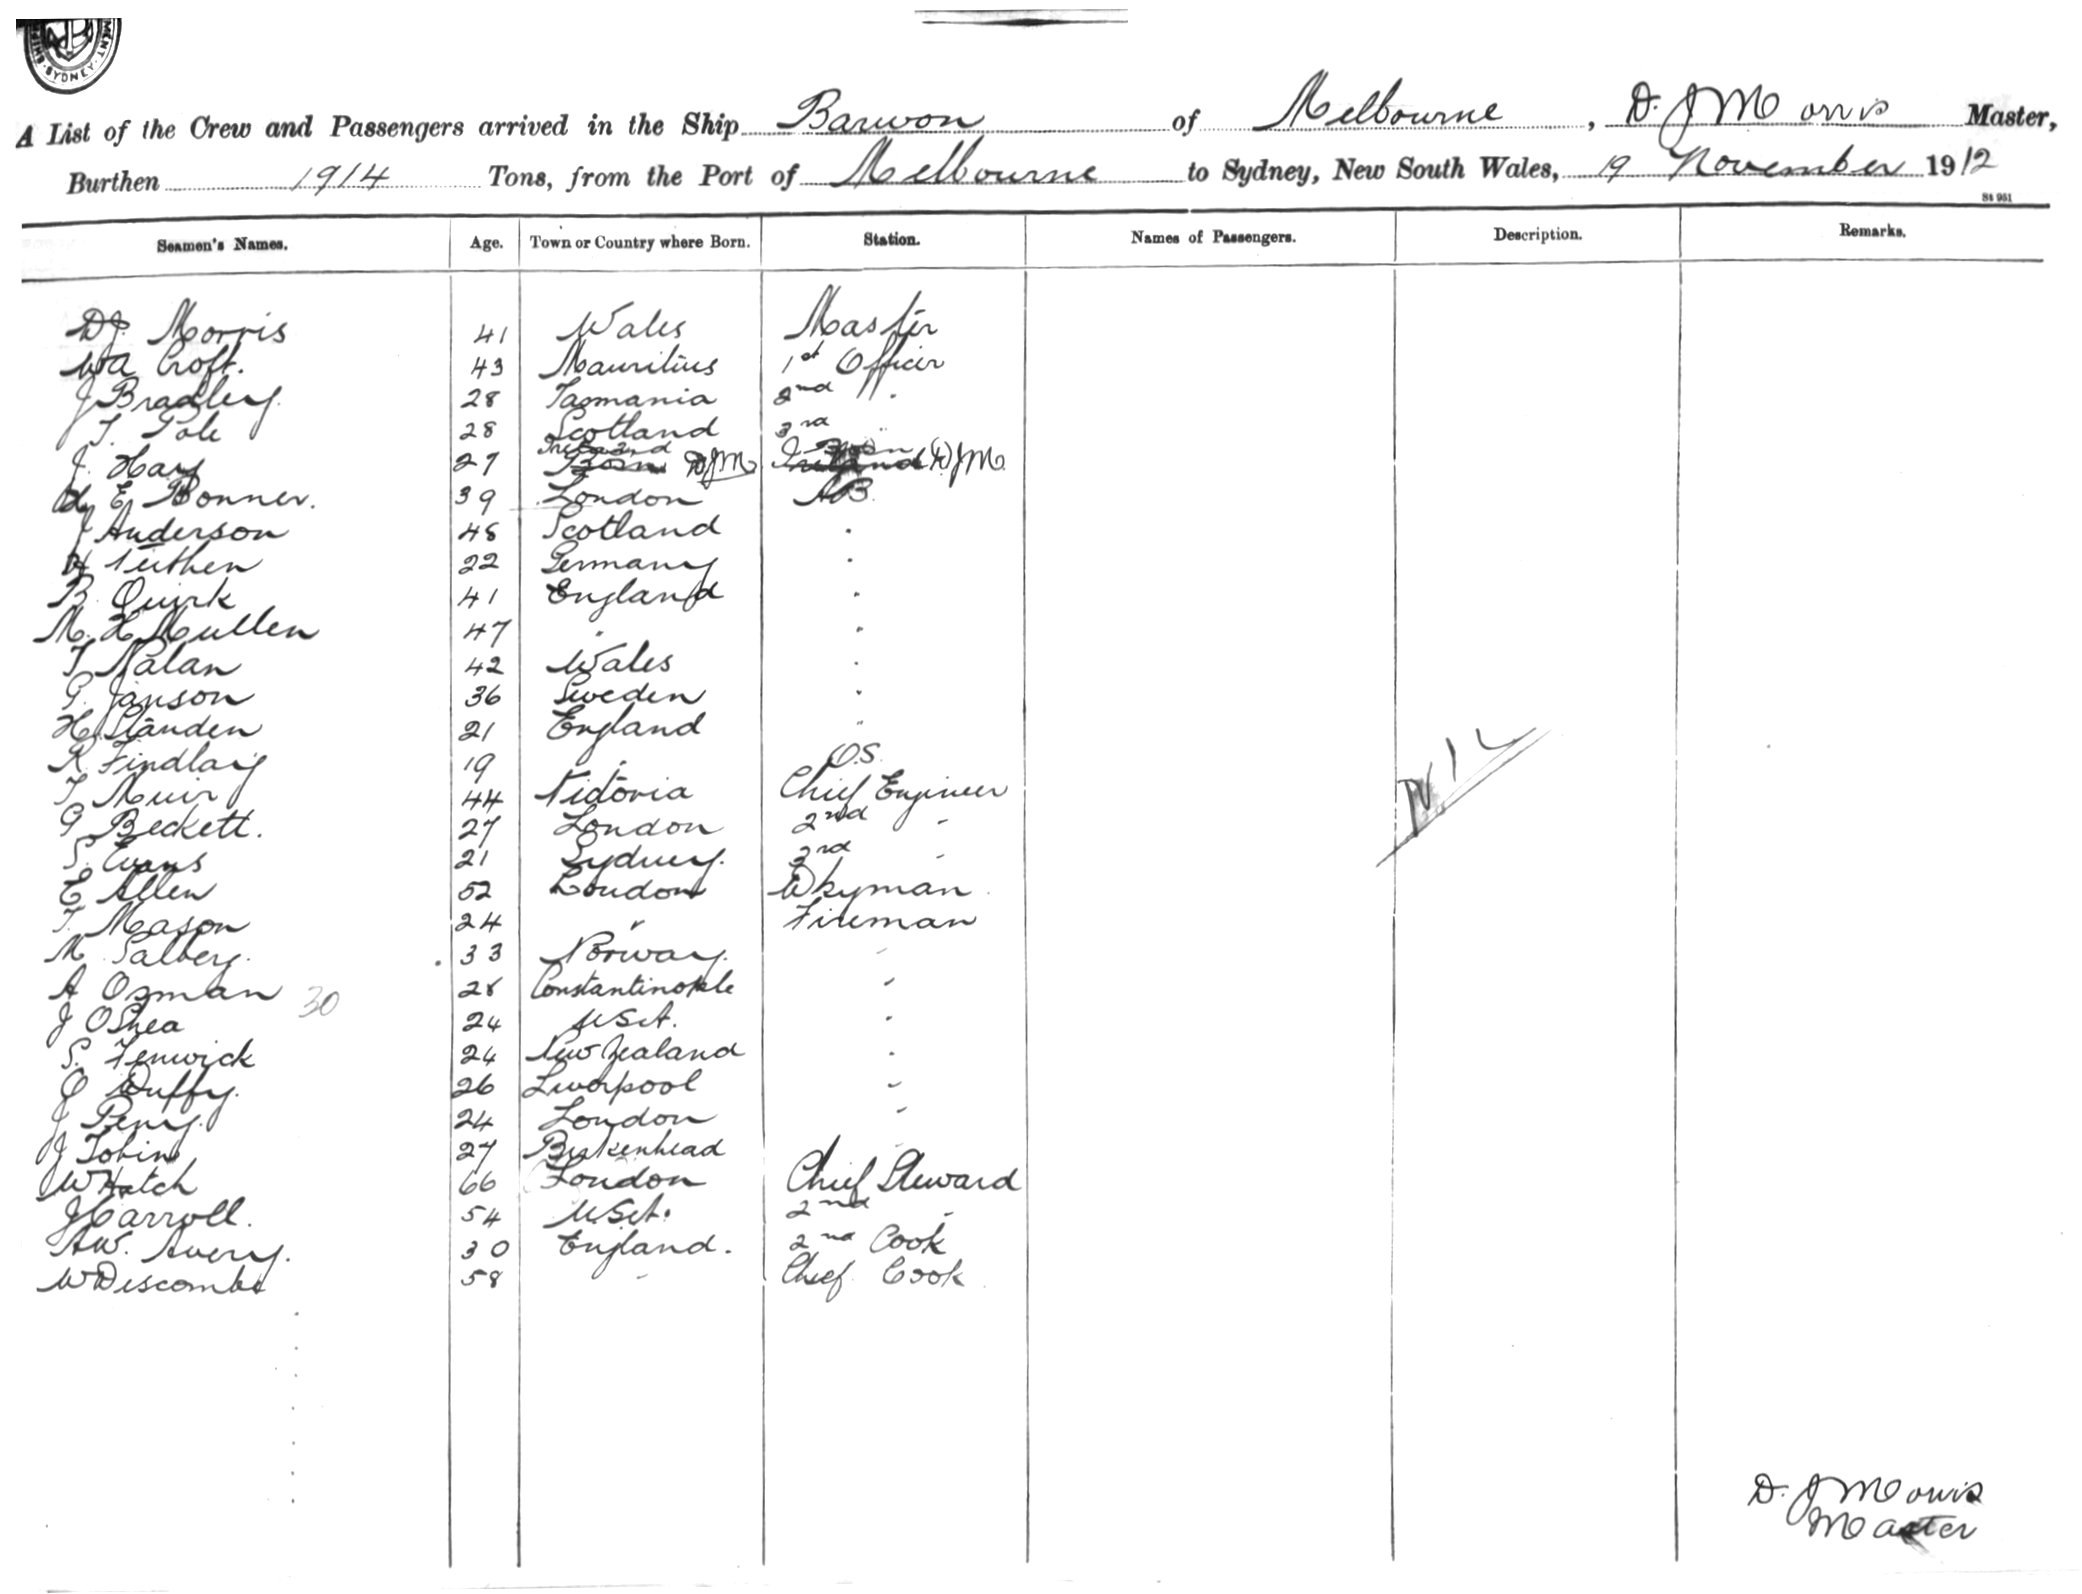 MENT. SYDNEY. SHIP
A List of the Crew and Passengers arrived in the Ship Barwon of Melbourne, D. J Morris Master,
Burthen 1914 Tons, from the Port of Melbourne to Sydney, New South Wales, 19 November 1912
St 951
Seamen's Names. Age. Town or Country where Born. Station. Names of Passengers. Description. Remarks.
DJ. Morris 41 Wales Master
WA Croft. 43 Mauritius 1st Officer
J Bradley. 28 Tasmania 2nd "
T. Pole 28 Scotland 3rd "
J. Hay 27 Ireland Bosn DJM Bosn Ireland DJM
H E Bonner. 39 London AB.
J Anderson 48 Scotland "
H Tuthen 22 Germany "
B. Quirk 41 England "
M. H Mullen 47 " "
T Nalan 42 Wales "
G. Janson 36 Sweden "
H Standen 21 England "
R. Findlay 19 " O.S.
T Muir 44 Victoria Chief Engineer
G Beckett. 27 London 2nd "
S. Evans 21 Sydney. 3rd "
E Allen 52 London Dkyman
T. Mason 24 " Fireman
M. Salberg. 33 Norway. "
A Osman 30 28 Constantinople "
J OShea 24 USA. "
S. Fenwick 24 New Zealand "
O Duffy. 26 Liverpool "
J Perry. 24 London "
J Tobin 27 Birkenhead
W Hatch 66 London Chief Steward
J Carroll. 54 USA. 2nd "
AW. Avery. 30 England. 2nd Cook
W Descombe 58 " Chief Cook
Nil
D. J Morris
Master